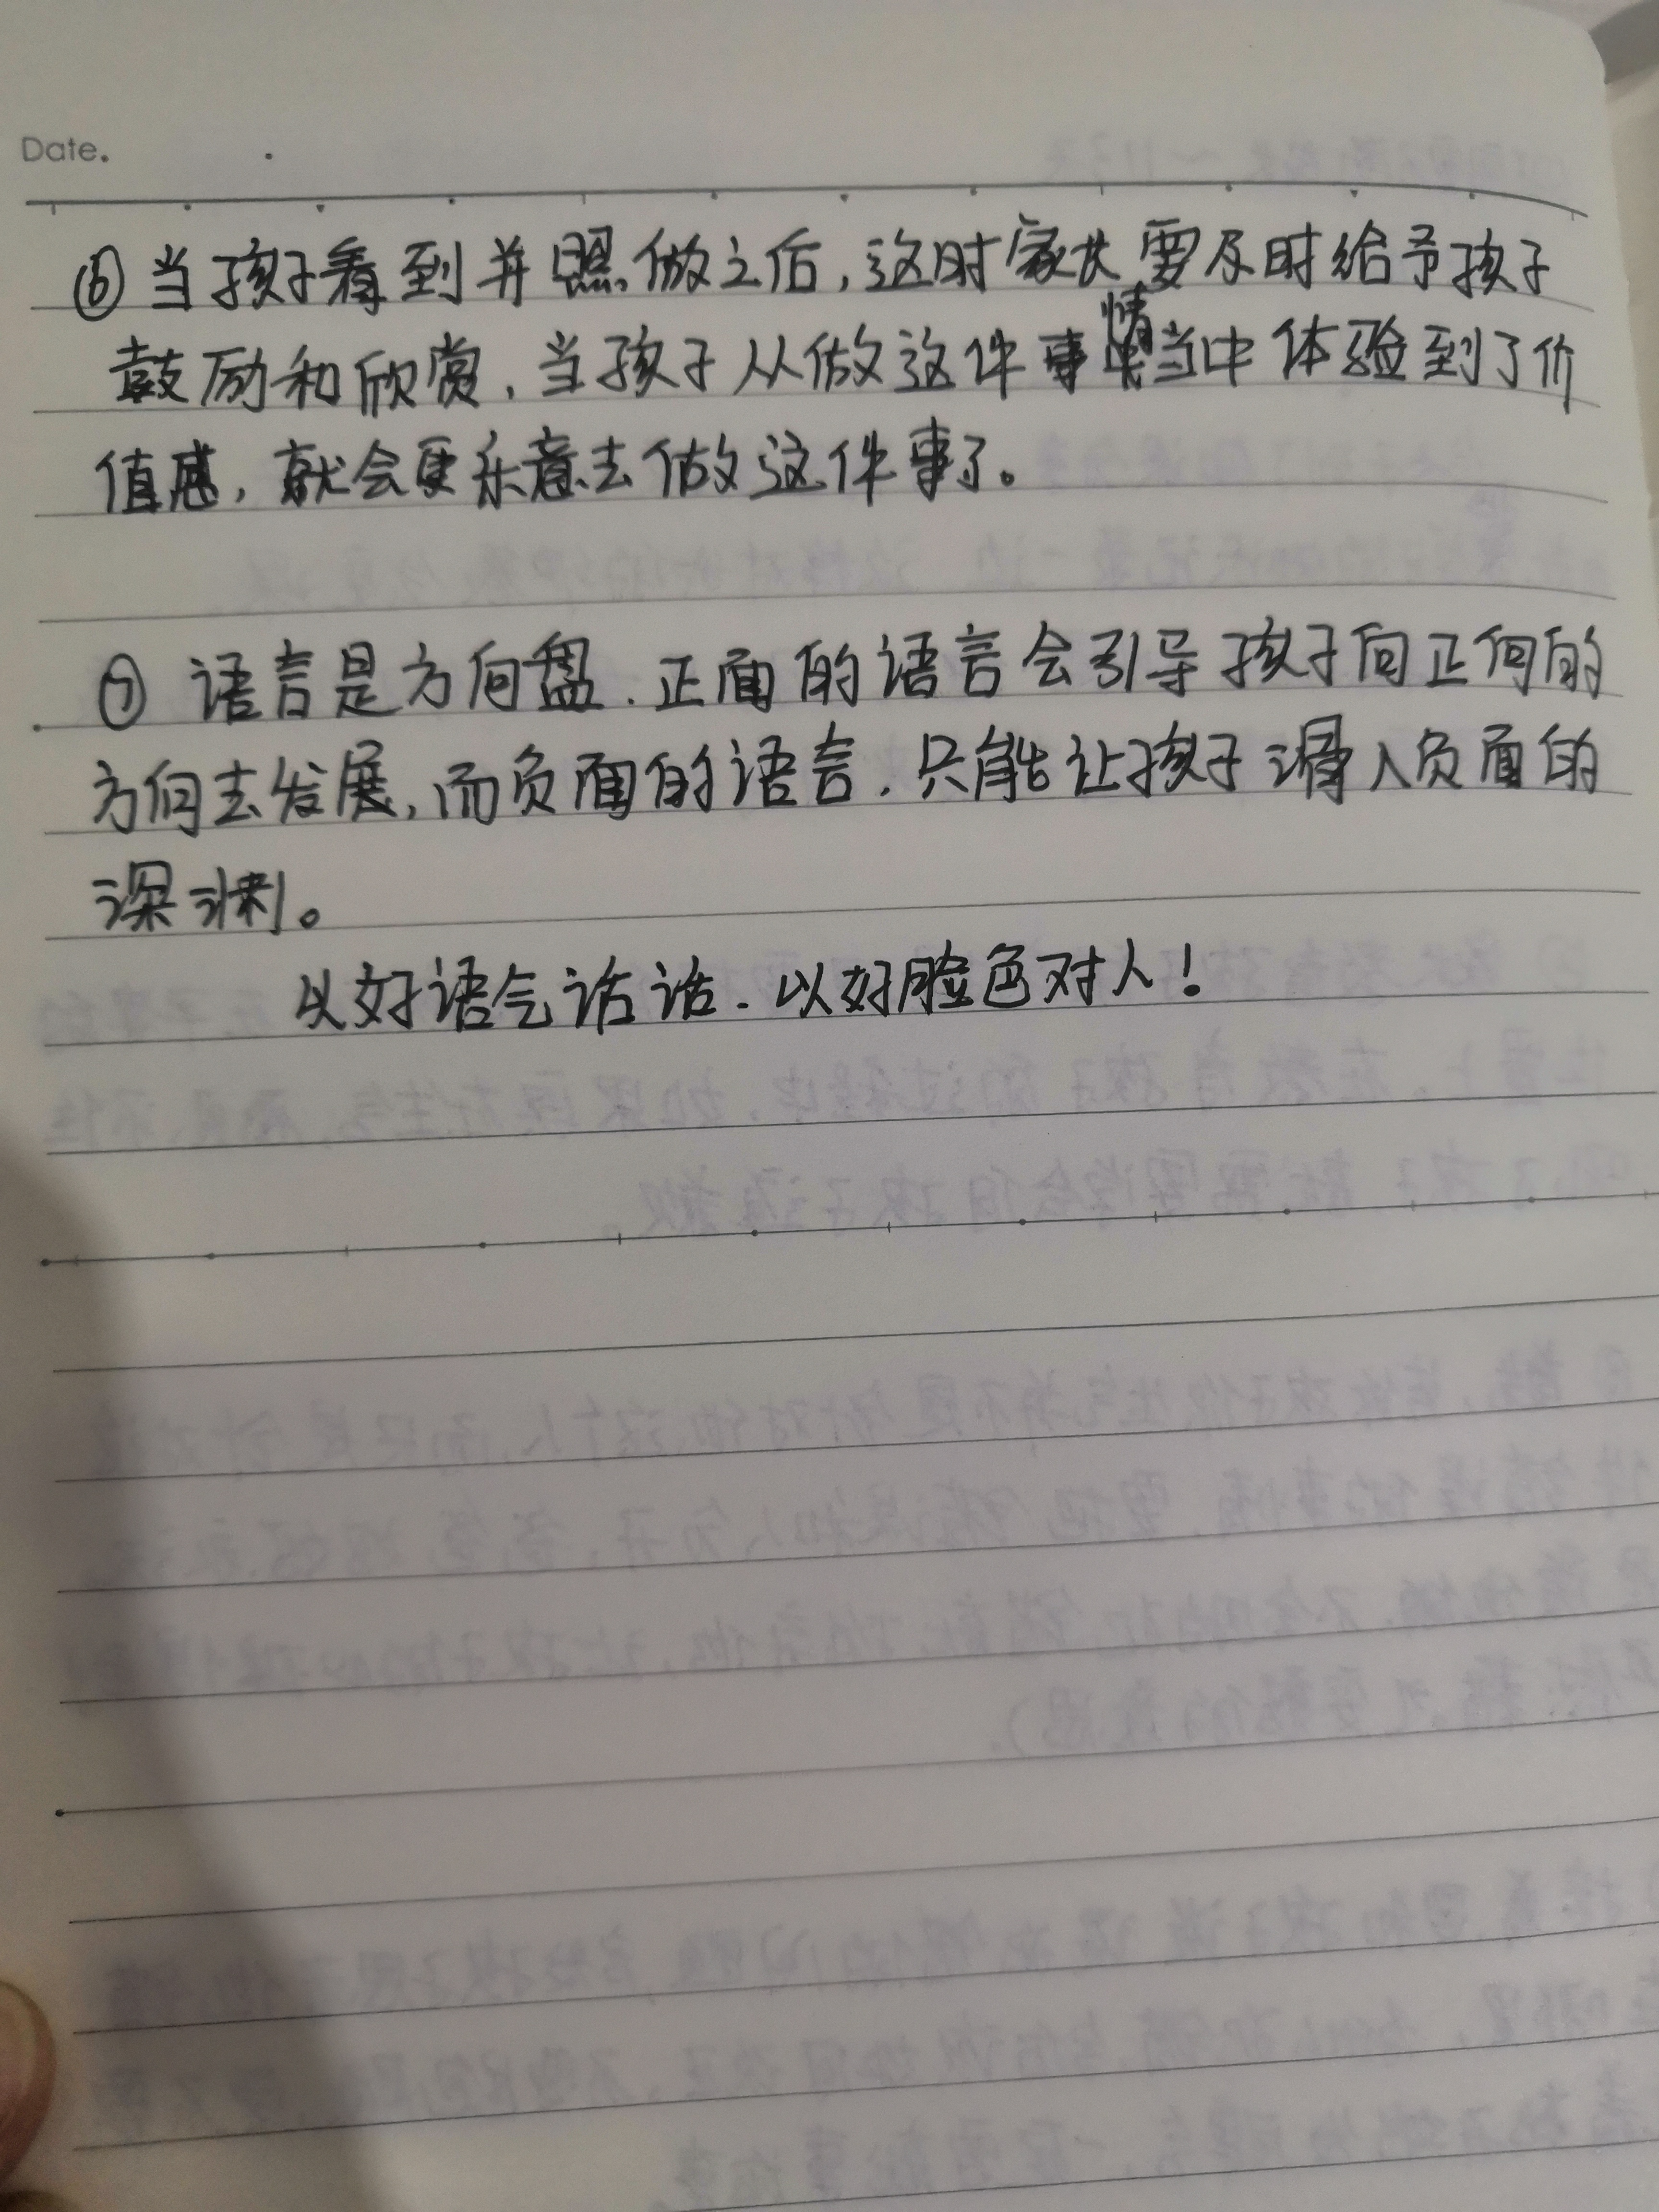 Date.
⑥当孩子看到并照做之后,这时家长要及时给予孩子
鼓励和欣赏,当孩子从做这件事情当中体验到了价
值感,就会更乐意去做这件事了。
⑦ 语言是方向盘.正面的语言会引导孩子向正向的
方向去发展,而负面的语言.只能让孩子滑入负面的
深渊。
以好语气话话.以好脸色对人!